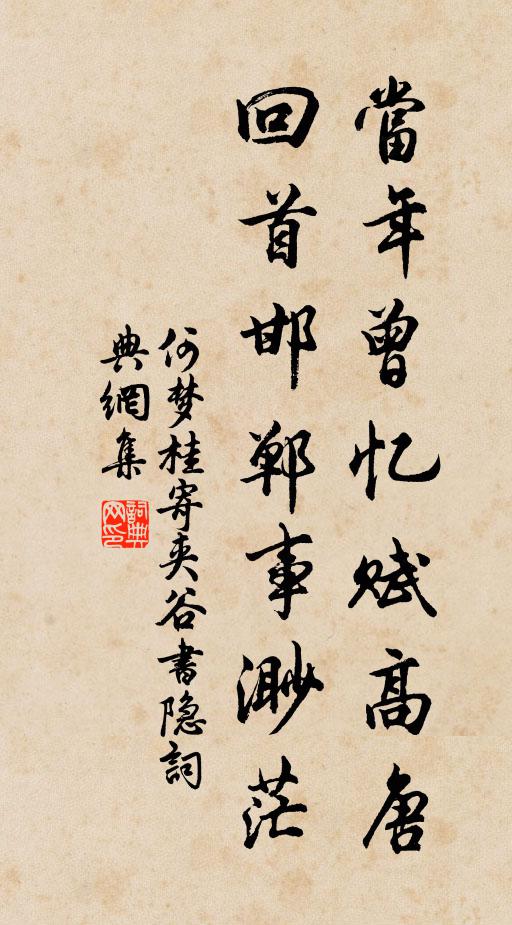 當年曾忆赋高唐
回首邯郸事渺茫
何梦桂寄夹谷書隐詞
典網集
詞典网印